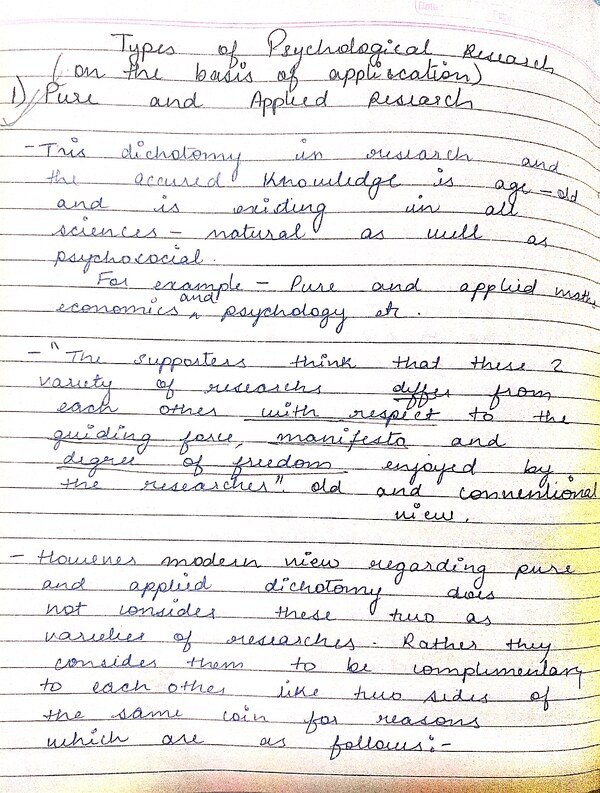 Types of Psychological Research
(on the basis of appliscation)
1) Pure and Applied Research
- This dichotomy in research and
the accured knowledge is age-old
and is existing in all
sciences - natural as well as
psychosocial.
For example - Pure and applied maths
economics and psychology etc.
- "The supporters think that these 2
variety of researchs differ from
each other with respect to the
guiding force, manifesto and
degree of freedom enjoyed by
the researches". old and conventional
view.
- However modern view regarding pure
and applied dichotomy does
not consider these two as
varieties of researches. Rather they
considers them to be complimentary
to each other like two sides of
the same coin for reasons
which are as follows:-